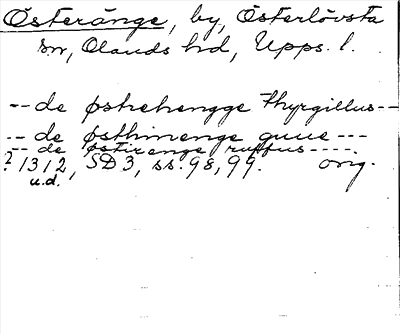 Österänge, by, Österlövsta
sn, Olands hd, Upps. l.
-- de østrehengge thyrgillus --
-- de østhinenge guue ---
-- de østirenge ruffus ----
? 1312, SD 3, ss. 98, 99. orig.
u.d.